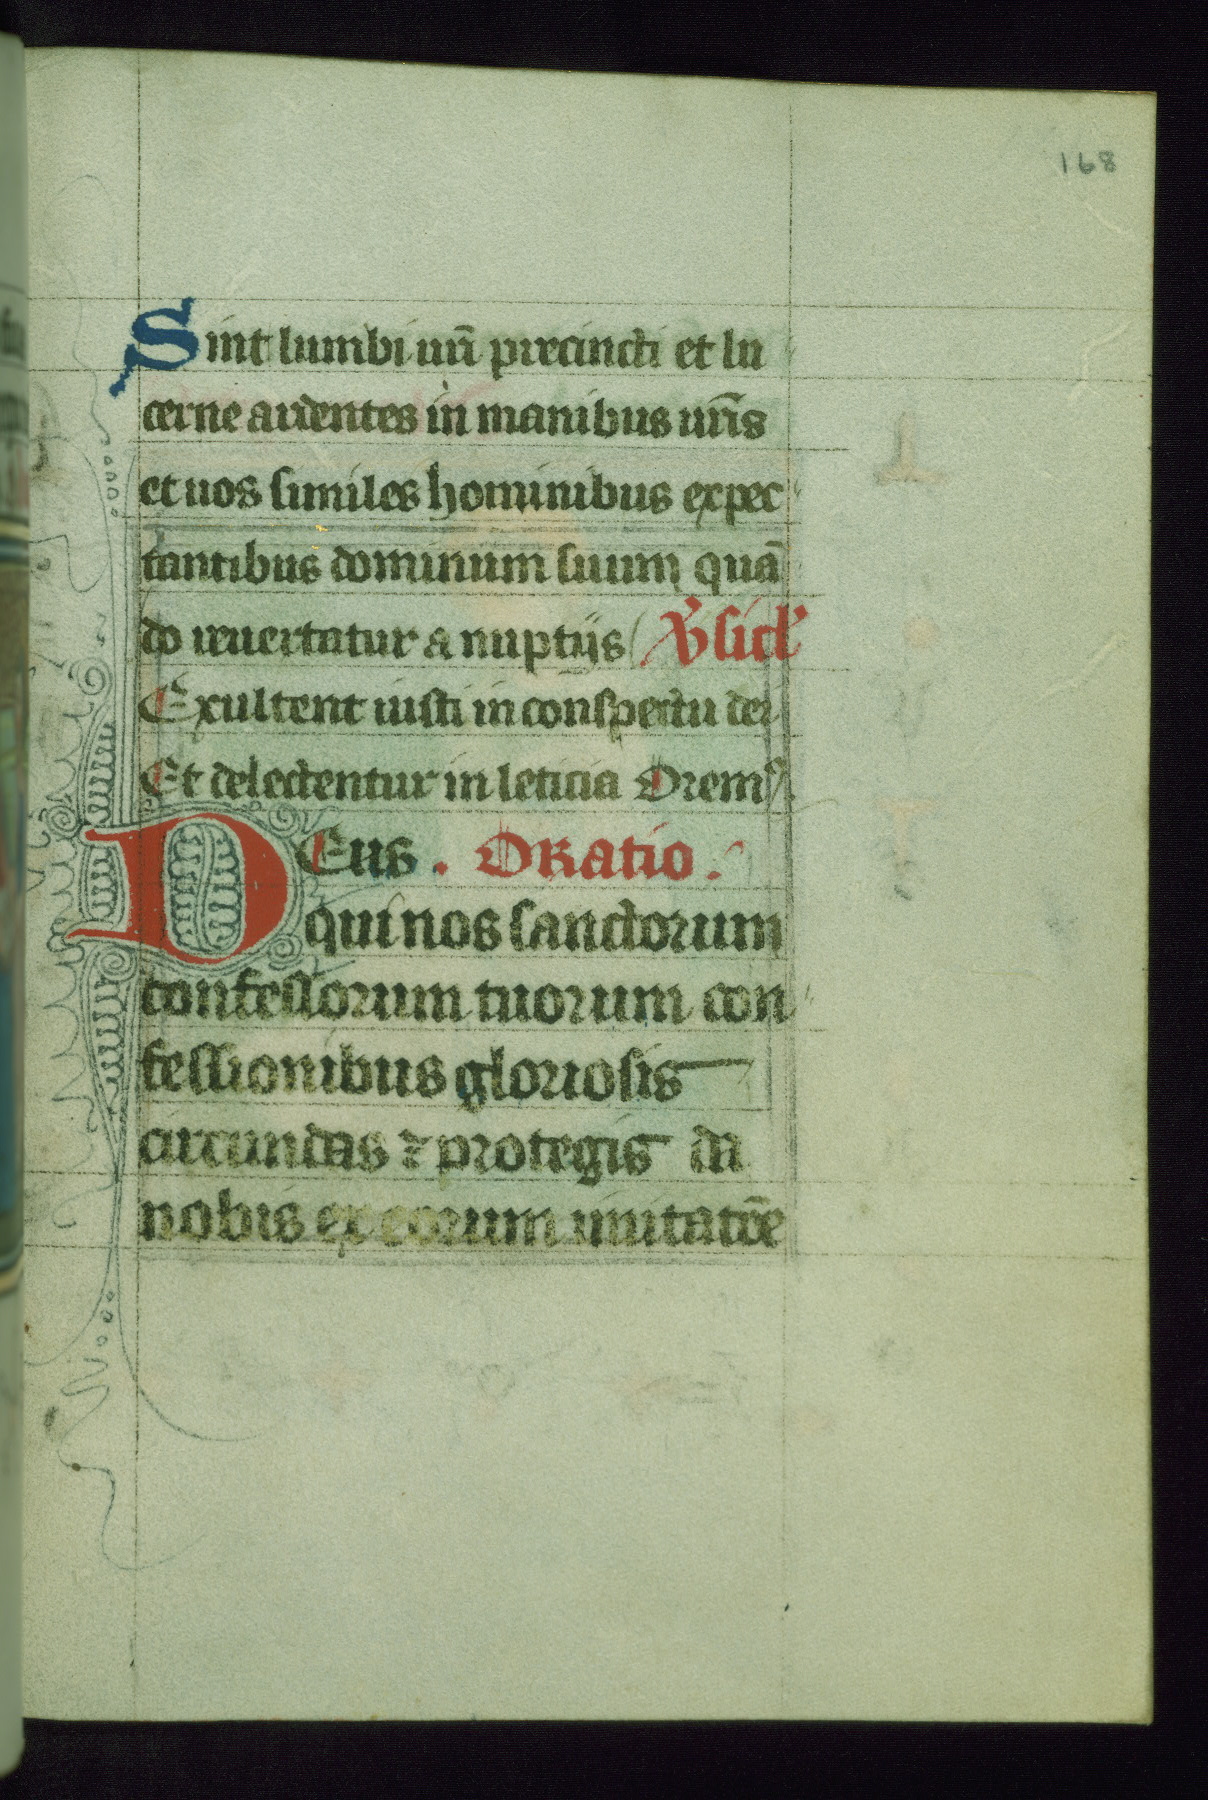 168
Sint lumbi urī precincti et lu
cerne ardentes in manibus urīs
et uos similes hominibus expec
tantibus dominum suum quā
do reuertatur a nuptijs
Exultent iusti in conspectu dei
Et delectentur in leticia Oremꝰ.
DEus . Oratio .
qui nos sanctorum
confessorum tuorum con
fessionibus gloriosis
circundas ⁊ protegis da
nobis ex eorum imitatōe